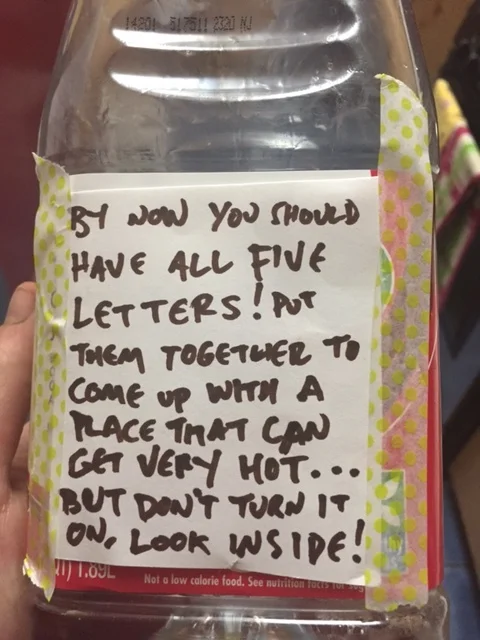 14201 517511 2320 NJ
BY NOW YOU SHOULD
HAVE ALL FIVE
LETTERS! PUT
THEM TOGETHER TO
COME UP WITH A
PLACE THAT CAN
GET VERY HOT...
BUT DON'T TURN IT
ON, LOOK INSIDE!
1.89L
Not a low calorie food. See nutrition facts for